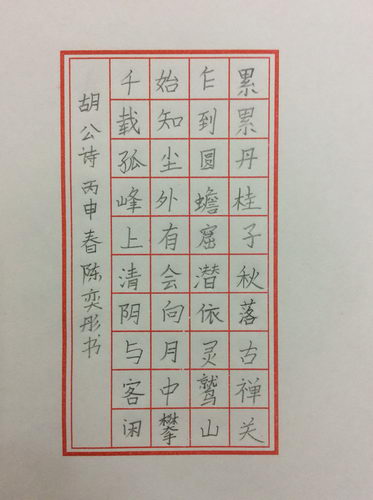 累累丹桂子秋落古禅关
乍到圆蟾窟潜依灵鹫山
始知尘外有会向月中攀
千载孤峰上清阴与客闲
胡公诗丙申春陈奕彤书